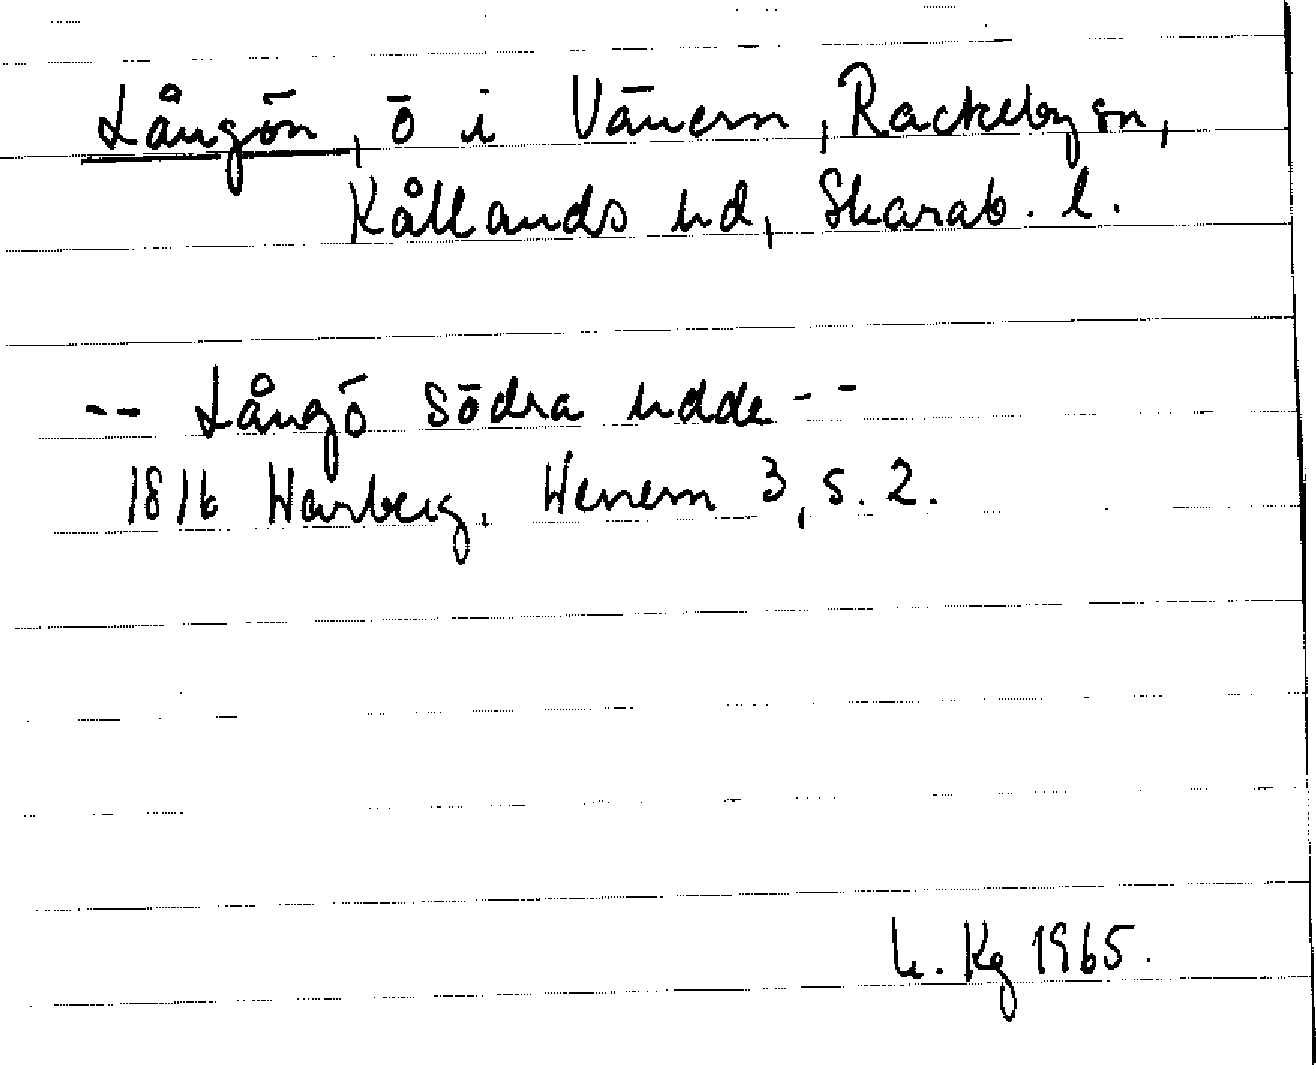 Långön, ö i Vänern, Rackeby sn,
Kållands hd, Skarab. l.
-- Långö södra udde --
1816 Warberg. Wenern 3, s. 2.
Kg 1965.